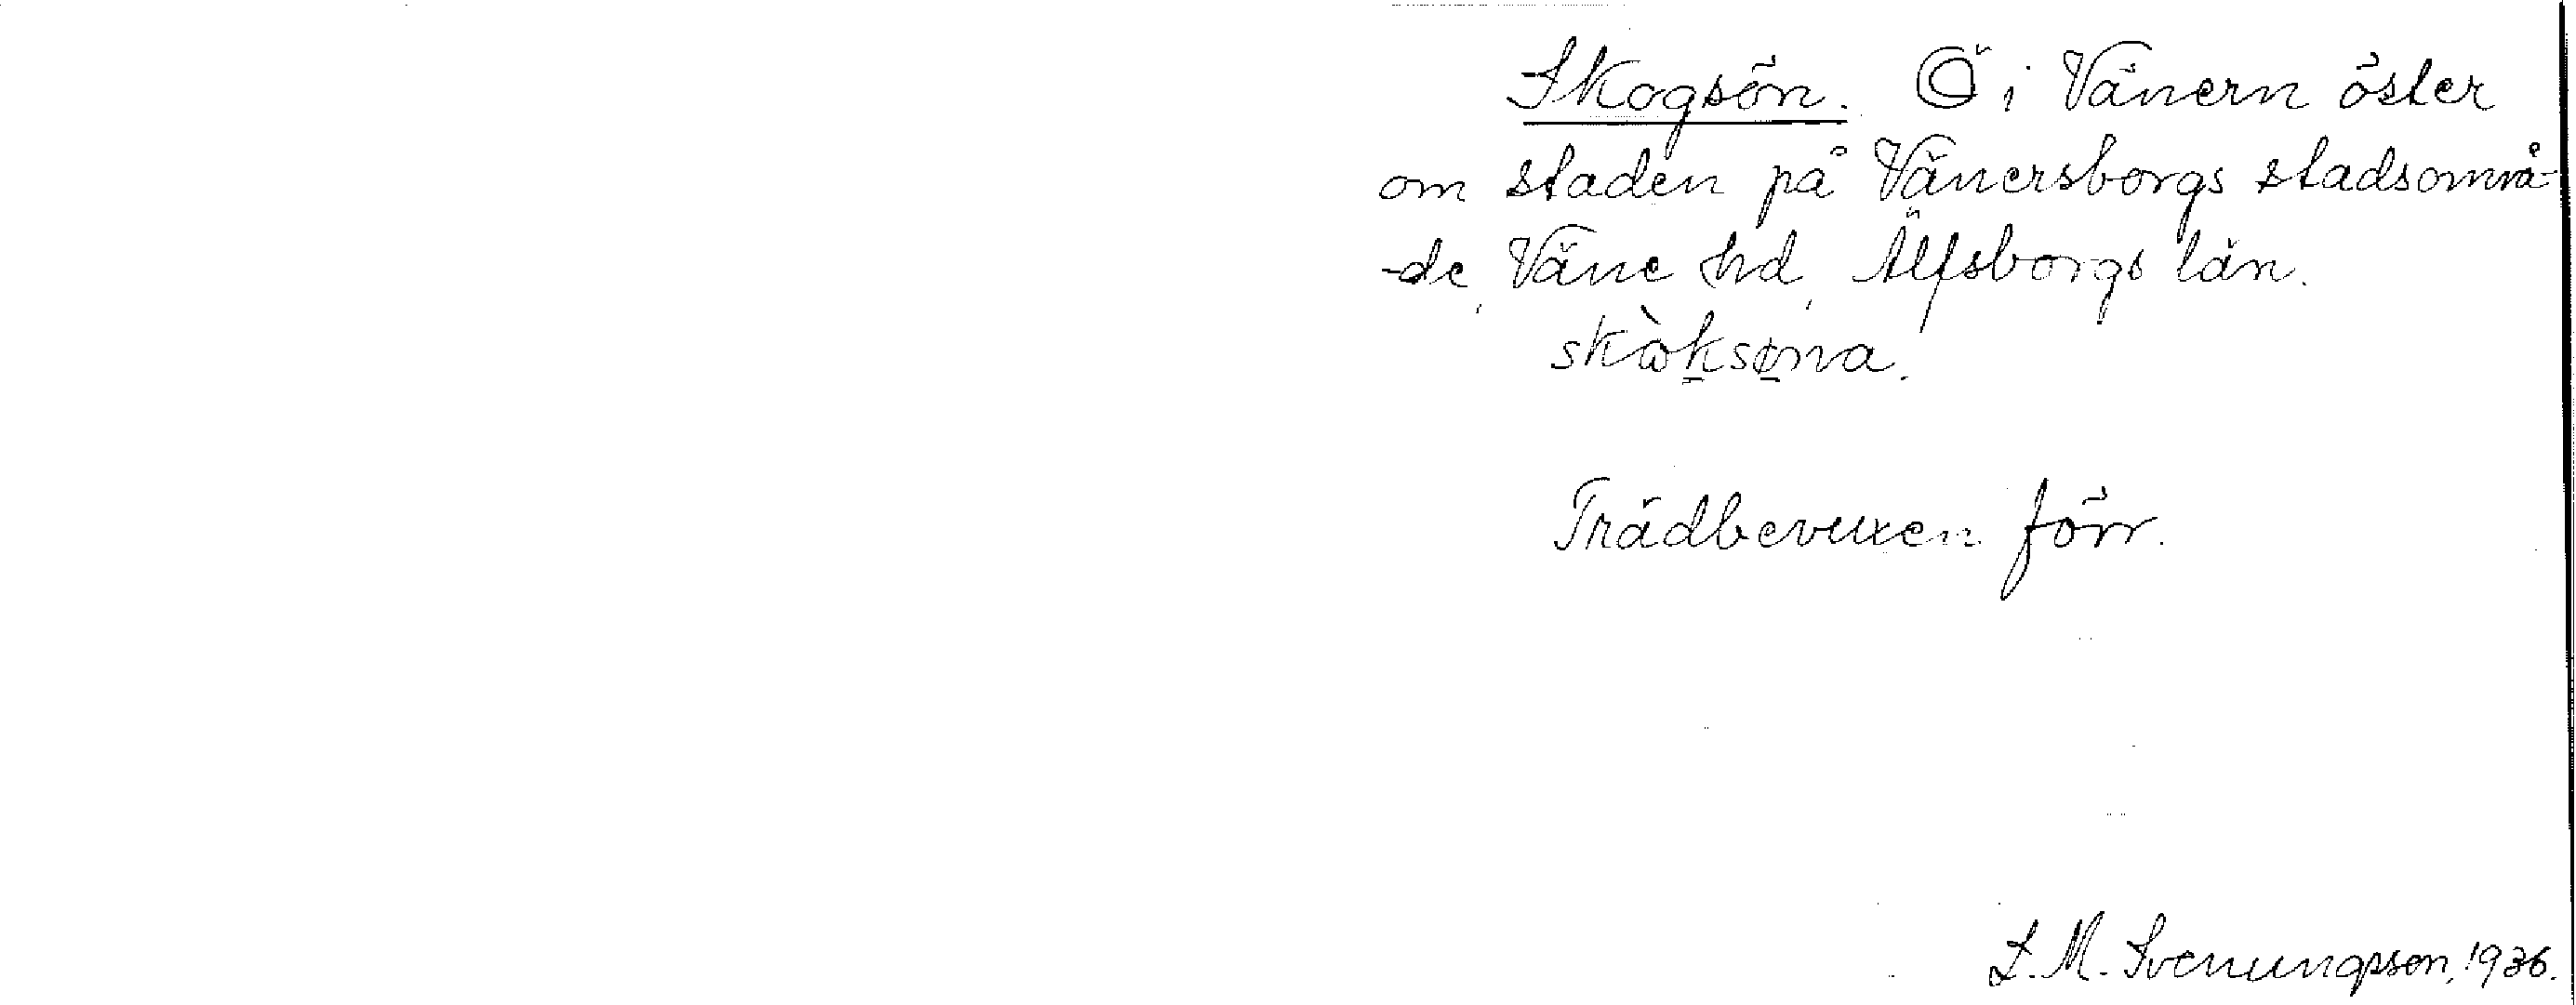 Skogsön. Ö i Vänern öster
om staden på Vänersborgs stadsområ-
-de, Väne hd, Älfsborgs län.
skὼksøna.
Trädbevuxen förr.
L. M. Svenungsson, 1936.